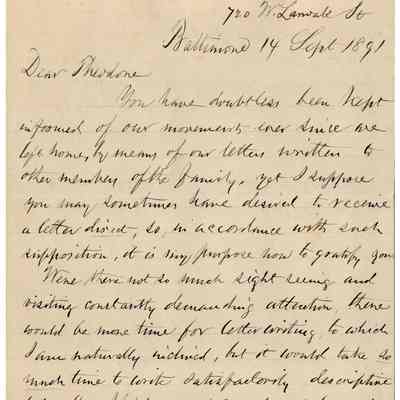 720 W. Lanvale St
Baltimore 14 Sept 1891
Dear Theodore
You have doubtless been kept
informed of our movements ever since we
left home, by means of our letters written to
other members of the family, yet I suppose
you may sometimes have desired to receive
a letter direct, so, in accordance with such
supposition, it is my purpose now to gratify you
Were there not so much sight seeing and
visiting constantly demanding attention there
would be more time for letter writing, to which
I am naturally inclined, but it would take so
much time to write satisfactorily descriptive